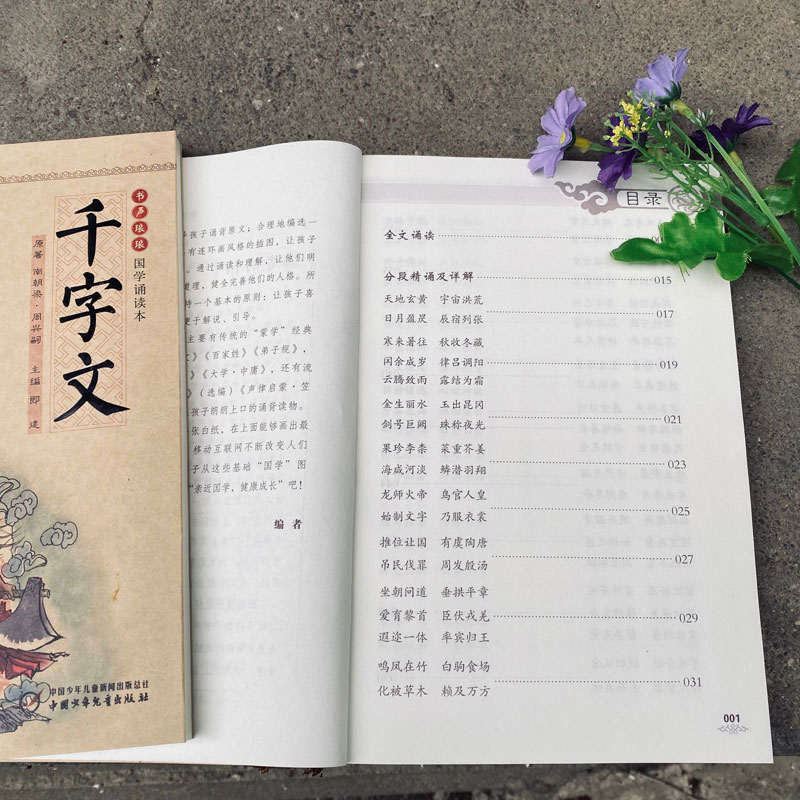 书声琅琅
国学诵读本
千字文
原著 南朝梁·周兴嗣 主编 邱建
中国少年儿童新闻出版总社
中国少年儿童出版社
孩子诵背原文；合理地编选一
有连环画风格的插图，让孩子
。通过诵读和理解，让他们明
理，健全完善他们的人格。所
持一个基本的原则：让孩子喜
于解说、引导。
主要有传统的“蒙学”经典
》《百家姓》《弟子规》，
》《大学·中庸》，还有流
》（选编）《声律启蒙·笠
孩子朗朗上口的诵背读物。
张白纸，在上面能够画出最
移动互联网不断改变人们
子从这些基础“国学”图
“亲近国学，健康成长”吧！
编 者
目录
全文诵读
分段精诵及详解 015
天地玄黄 宇宙洪荒
日月盈昃 辰宿列张 017
寒来暑往 秋收冬藏
闰余成岁 律吕调阳 019
云腾致雨 露结为霜
金生丽水 玉出昆冈
剑号巨阙 珠称夜光 021
果珍李柰 菜重芥姜
海咸河淡 鳞潜羽翔 023
龙师火帝 鸟官人皇
始制文字 乃服衣裳 025
推位让国 有虞陶唐
吊民伐罪 周发殷汤 027
坐朝问道 垂拱平章
爱育黎首 臣伏戎羌 029
遐迩一体 率宾归王
鸣凤在竹 白驹食场
化被草木 赖及万方 031
001